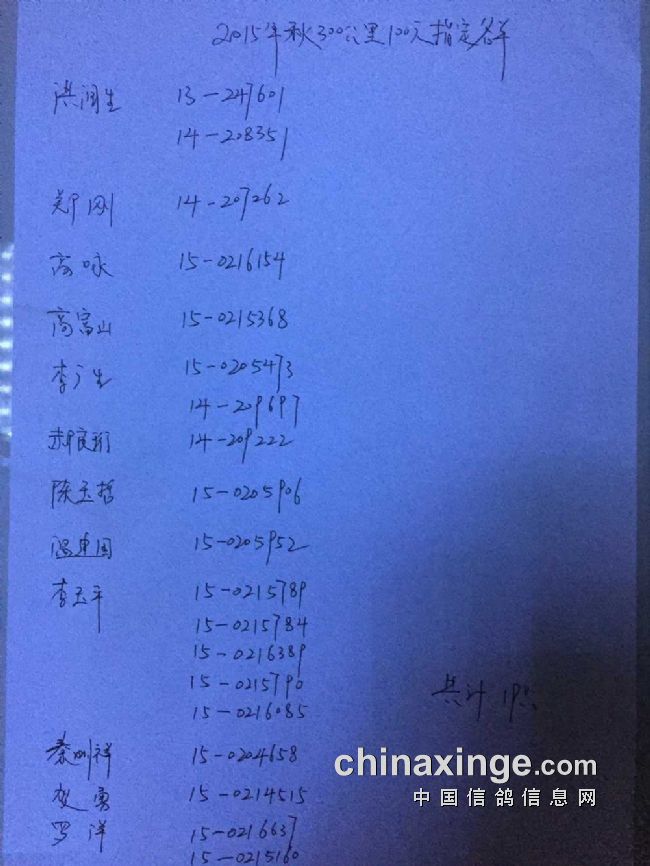 2015年秋300公里100元指定名单
洪润生 13-247601
14-208351
郑刚 14-207262
高咏 15-0216154
高富山 15-0215368
李广生 15-0205473
14-209697
郝良珩 14-209222
陈玉哲 15-0205906
温東国 15-0205952
李玉平 15-0215789
15-0215784
15-0216389
15-0215790
15-0216085
共计 19只
秦州祥 15-0204658
贺勇 15-0214515
罗洋 15-0216637
15-0215160
chinaxinge.com
中国信鸽信息网